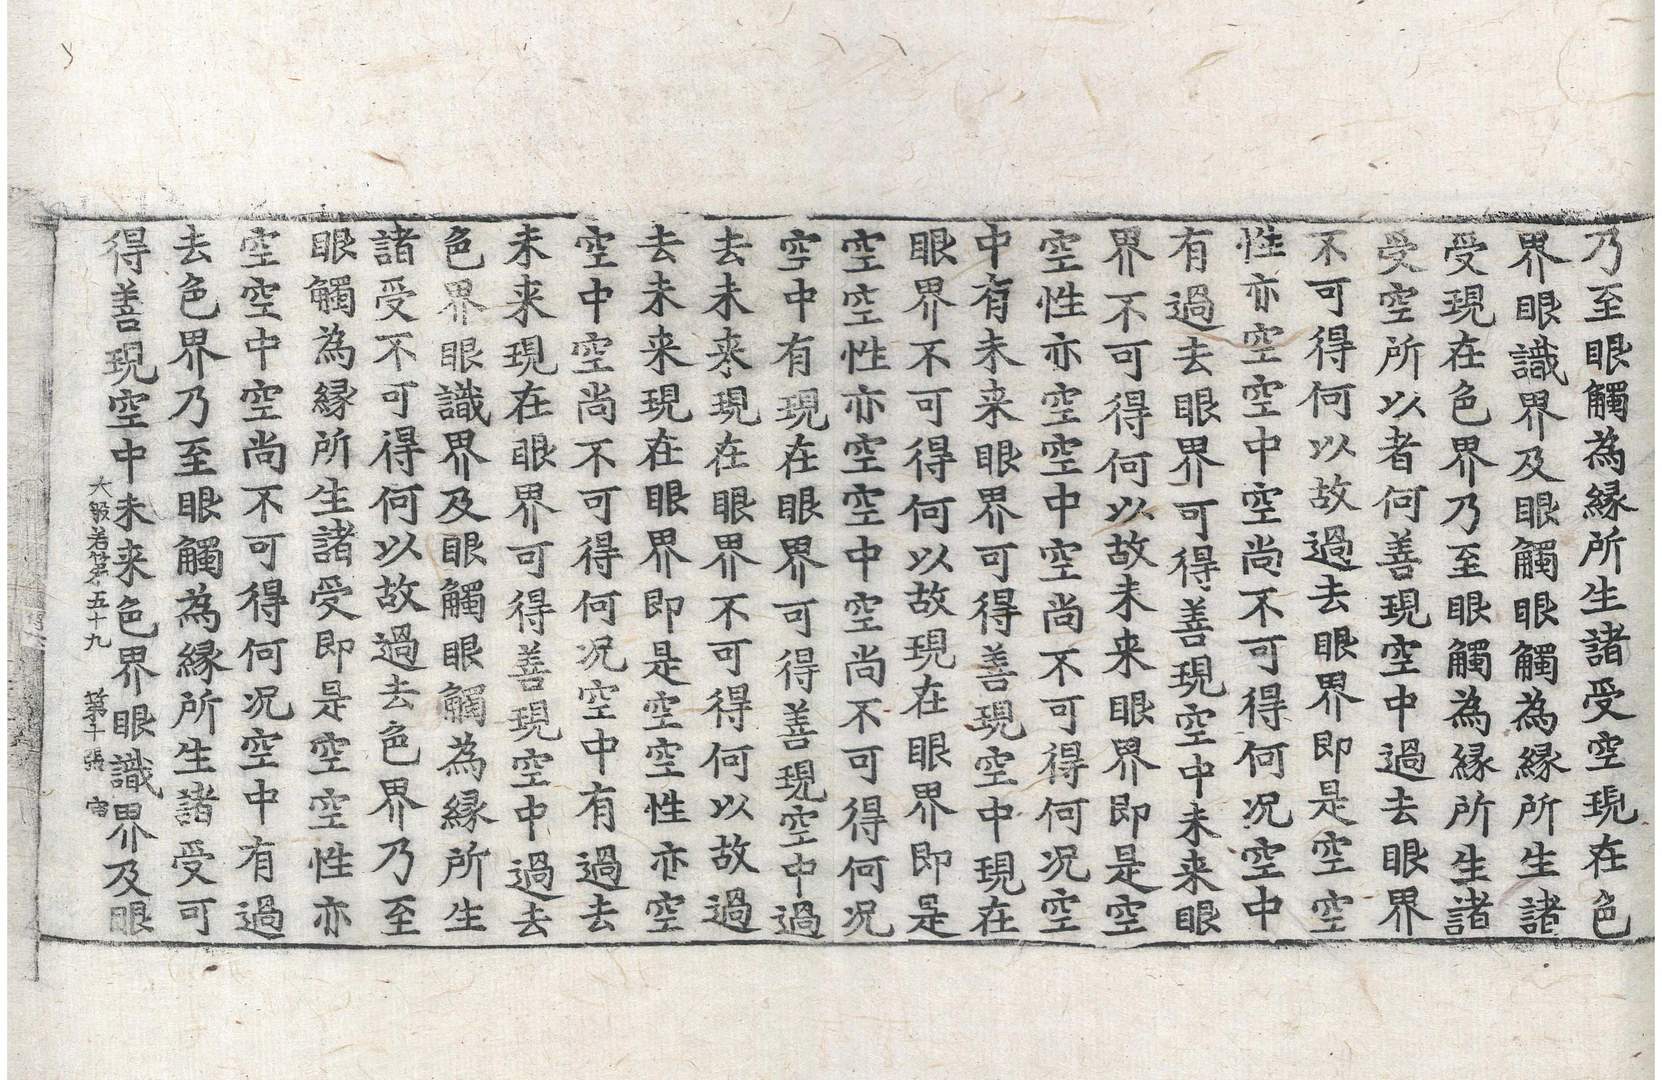 乃至眼觸為縁所生諸受空現在色
界眼識界及眼觸眼觸為縁所生諸
受現在色界乃至眼觸為縁所生諸
受空所以者何善現空中過去眼界
不可得何以故過去眼界即是空空
性亦空空中空尚不可得何况空中
有過去眼界可得善現空中未来眼
界不可得何以故未来眼界即是空
空性亦空空中空尚不可得何况空
中有未来眼界可得善現空中現在
眼界不可得何以故現在眼界即是
空空性亦空空中空尚不可得何况
空中有現在眼界可得善現空中過
去未来現在眼界不可得何以故過
去未来現在眼界即是空空性亦空
空中空尚不可得何况空中有過去
未来現在眼界可得善現空中過去
色界眼識界及眼觸眼觸為縁所生
諸受不可得何以故過去色界乃至
眼觸為縁所生諸受即是空空性亦
空空中空尚不可得何况空中有過
去色界乃至眼觸為縁所生諸受可
得善現空中未来色界眼識界及眼
大般若經第五十九 第十張 宙